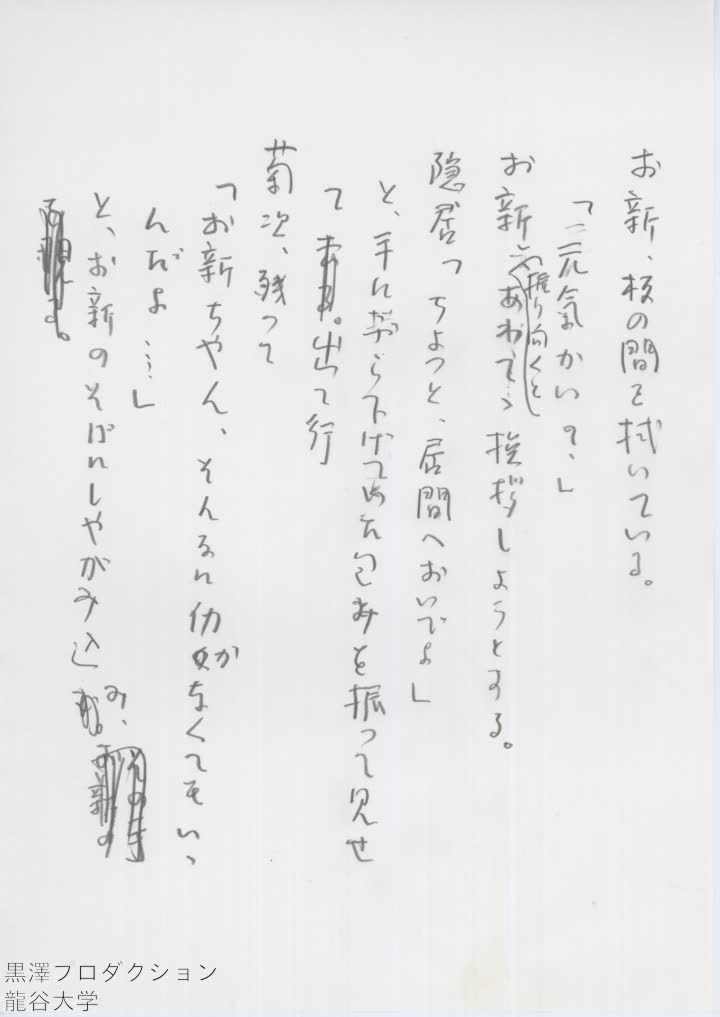 お新、板の間を拭いている。
「元気かい？」
お新、振り向くとあわてゝ挨拶しようとする。
隠居「ちょっと、居間へおいでよ」
と、手にぶら下げてゐた包みを振って見せ
て出て行
菊次、残って
「お新ちゃん、そんなに働かなくてもいゝ
んだよ……」
と、お新のそばにしゃがみ込み、
黒澤プロダクション
龍谷大学